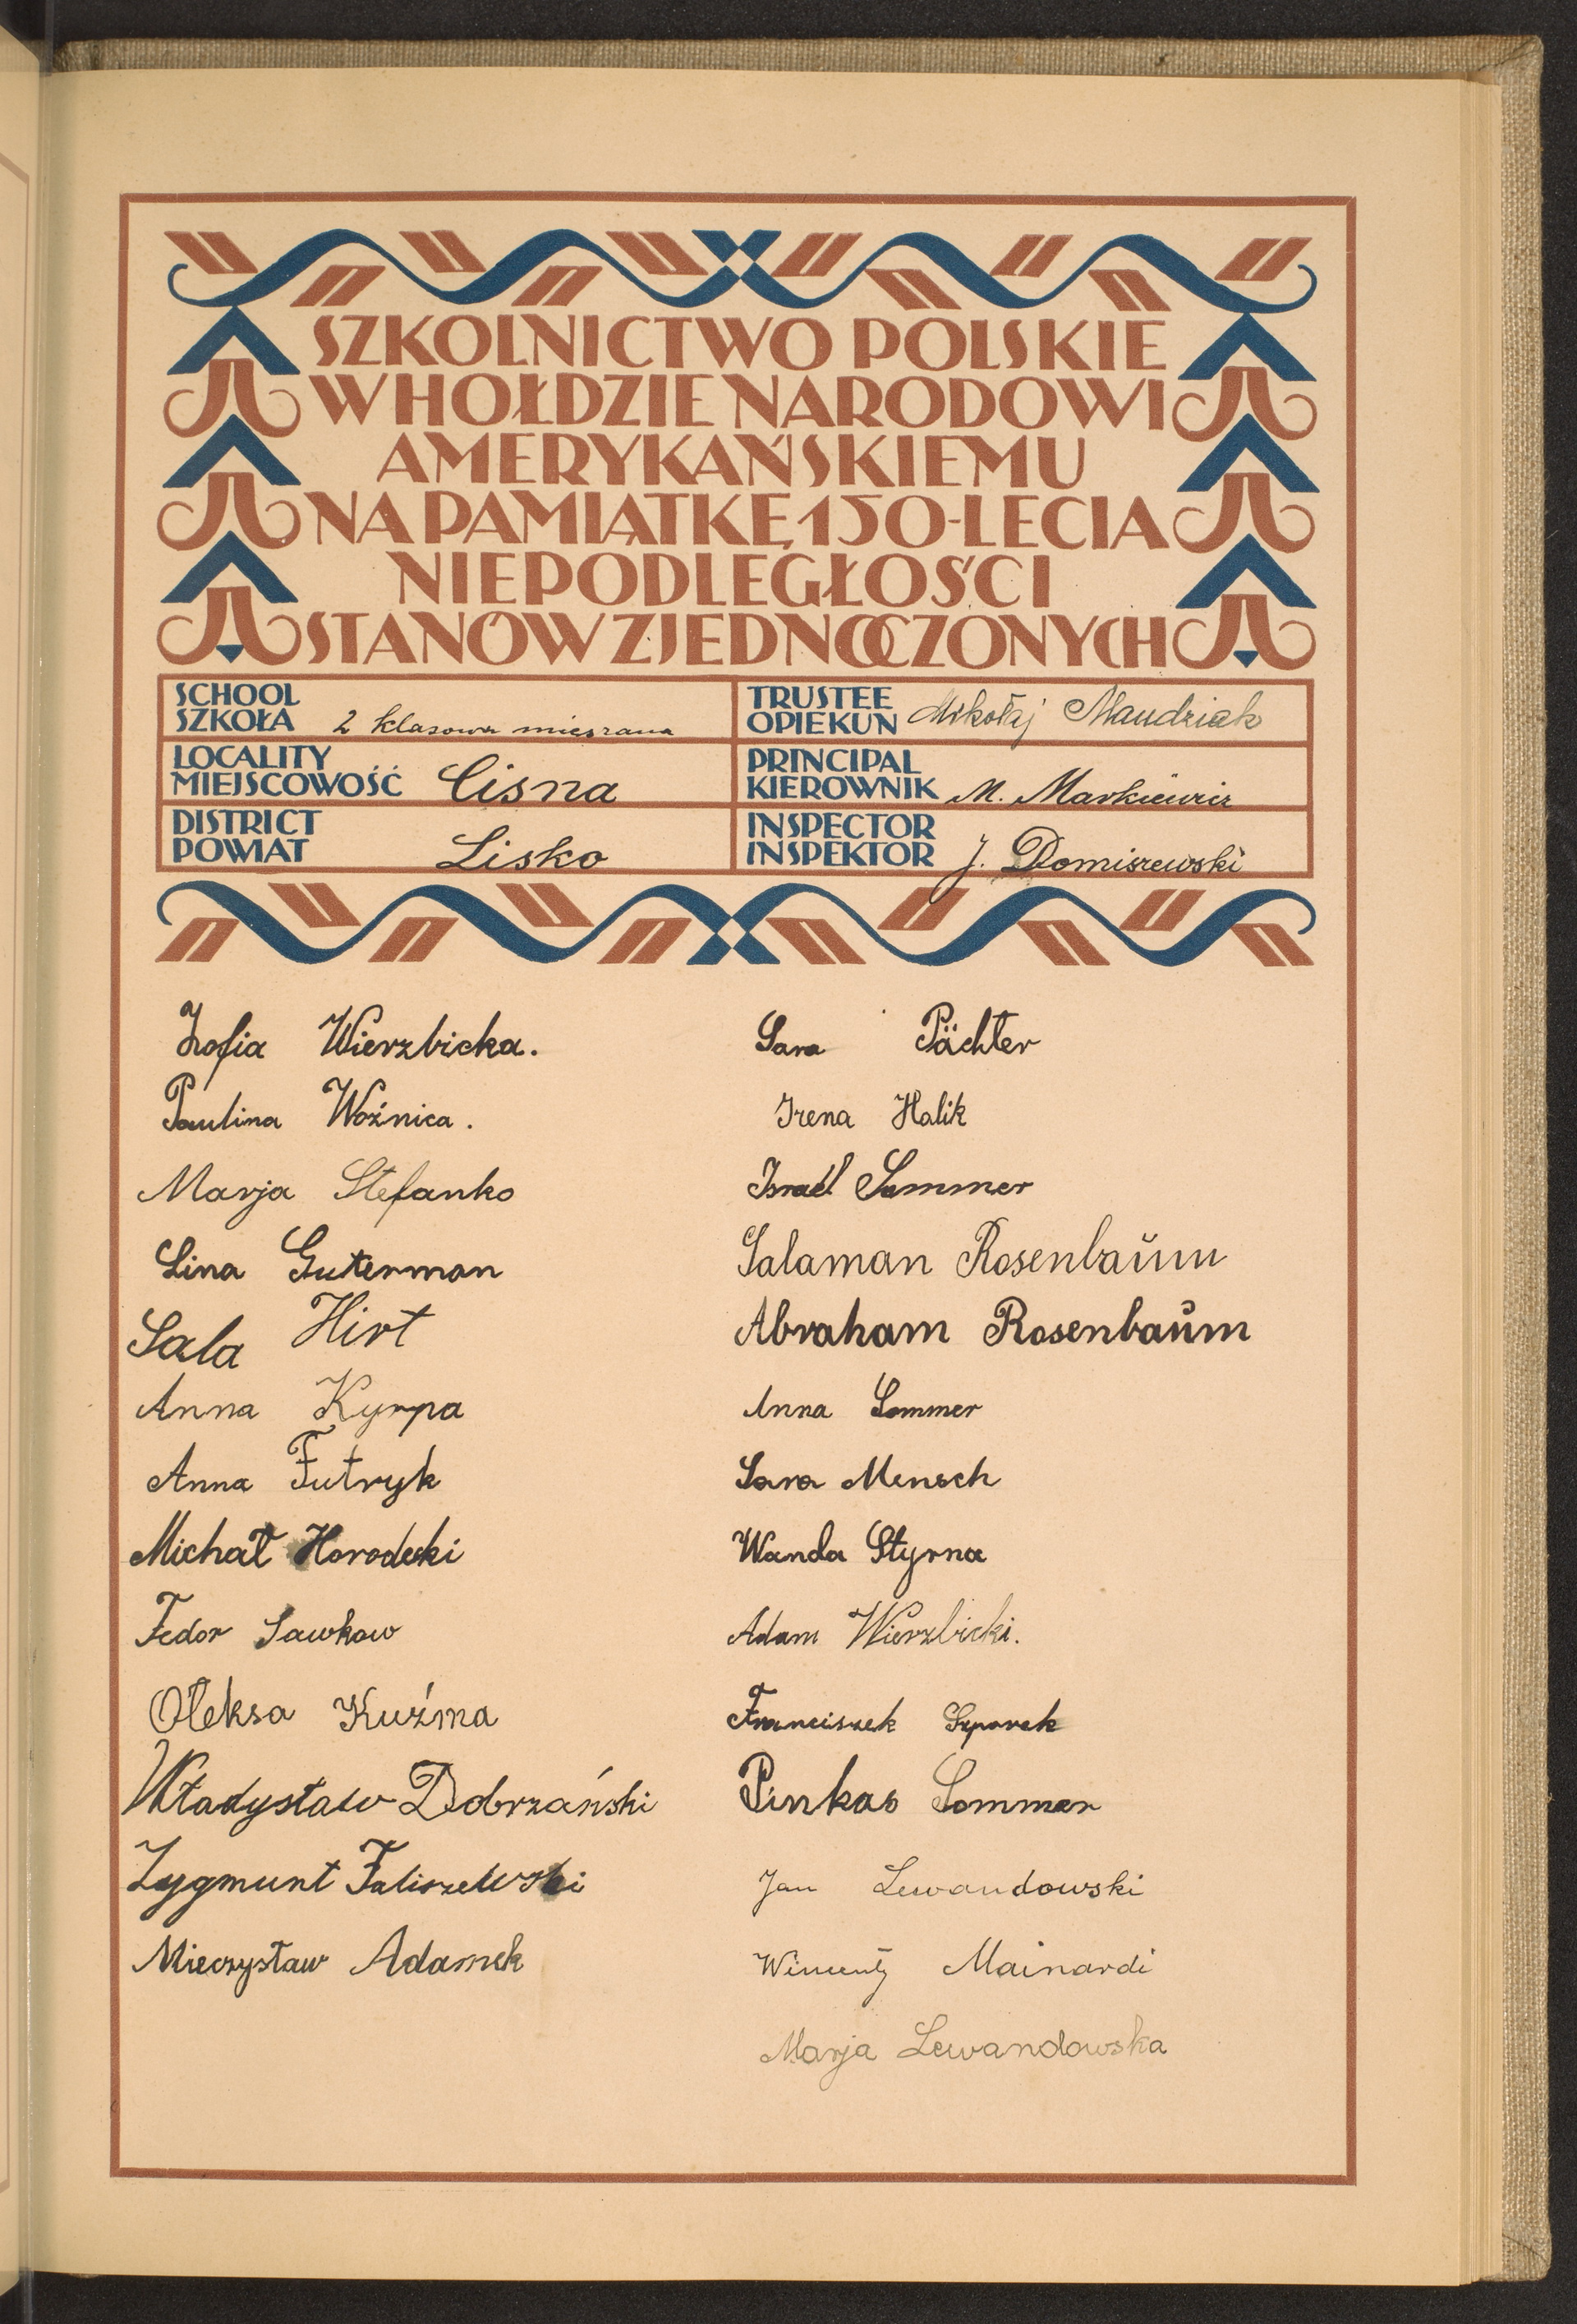 SZKOLNICTWO POLSKIE
W HOŁDZIE NARODOWI
AMERYKAŃSKIEMU
NA PAMIĄTKĘ 150-LECIA
NIEPODLEGŁOŚCI
STANÓW ZJEDNOCZONYCH
SCHOOL
SZKOŁA 2 klasowa mieszana
LOCALITY
MIEJSCOWOŚĆ Cisna
DISTRICT
POWIAT Lisko
TRUSTEE
OPIEKUN Mikołaj Maudziak
PRINCIPAL
KIEROWNIK M. Markiewicz
INSPECTOR
INSPEKTOR J. Domiszewski
Zofia Wierzbicka.
Paulina Woźnica.
Marja Stefanko
Lina Guterman
Sala Hirt
Anna Kyrpa
Anna Futryk
Michał Horodecki
Fedor Sawkow
Ołeksa Kuźma
Władysław Dobrzański
Zygmunt Faliszewski
Mieczysław Adamek
Sara Pächter
Irena Halik
Israel Sommer
Salaman Rosenbaŭm
Abraham Rosenbaŭm
Anna Sommer
Sara Mensch
Wanda Styrna
Adam Wierzbicki.
Franciszek
Pinkas Sommer
Jan Lewandowski
Wincenty Mainardi
Marja Lewandowska